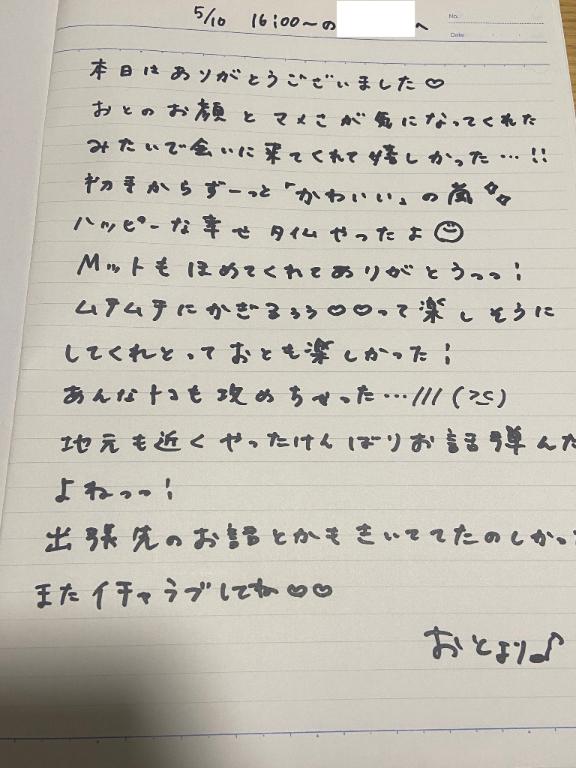 No.
Date
5/10 16:00〜の へ
本日はありがとうございました♡
おとのお顔とマメさが気になってくれた
みたいで会いに来てくれて嬉しかった…!!
初手からずーっと「かわいい」の嵐✨
ハッピーな幸せタイムやったよ☺
Mットもほめてくれてありがとうっっ!
ムチムチにかぎるぅぅ♡♡って楽しそうに
してくれとっておとも楽しかった!
あんなトコも攻めちゃった…///(>≦)
地元も近くやったけんばりお話弾んだ
よねっっ!
出張先のお話とかもきいててたのしかっ
またイチャラブしてね♡♡
おとより♪